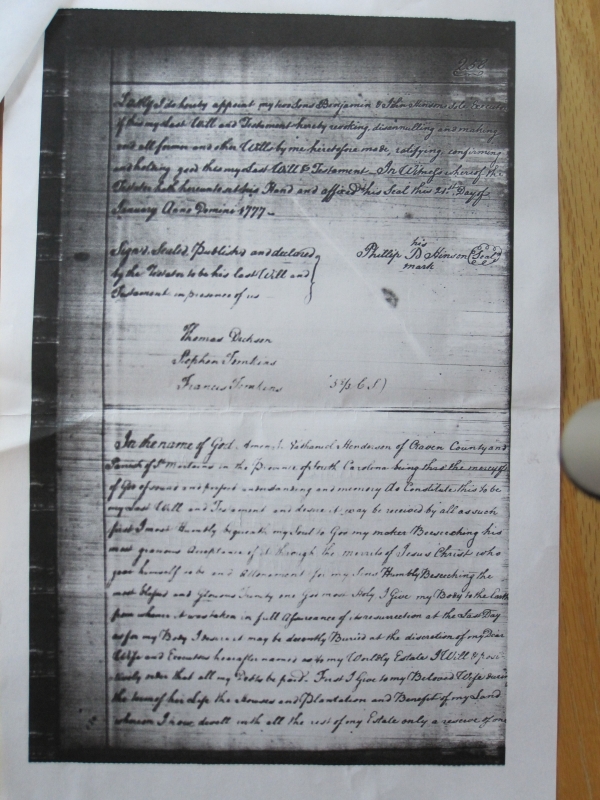 Lastly I do hereby appoint my two Sons Benjamin & John Hinson Sole
of this my Last Will and Testament hereby revoking, disannulling and making
void all former and other Wills by me heretofore made, ratifying, confirming
and holding good this my Last Will & Testament In Witness whereof the
Testator hath hereunto set his Hand and affixed his Seal this 21st Day of
January Anno Domini 1777
Sign'd, Sealed, Publish'd and declared
by the Testator to be his last Will and
Testament in presence of us
his
Phillip D Hinson (Seal)
mark
Thomas Dickson
Stephen Tomkins
Francis Tomkins
In the name of God Amen I Nathaniel Henderson of Craven County and
Parish of St Marks in the Province of South Carolina being thro the mercy
of God of sound and perfect understanding and memory do Constitute this to be
my Last Will and Testament and desire it may be received by all as such
first I most Humbly bequeath my Soul to God my maker Beseeching his
most gracious Acceptance of it through the merrits of Jesus Christ who
gave himself to be an Attonement for my Sins Humbly Beseeching the
most Blessed and Glorious Trinity one God most Holy I Give my Body to the Earth
from whence it was taken in full Assurance of its resurrection at the Last Day
as for my Body I desire it may be decently Buried at the discretion of my Dear
Wife and Executors hereafter named as to my Worldly Estate I Will & posi-
tively order that all my Debts be paid. First I Give to my Beloved Wife during
the term of her Life the Houses and Plantation and Benefit of my Land
whereon I now dwell with all the rest of my Estate only a reserve of